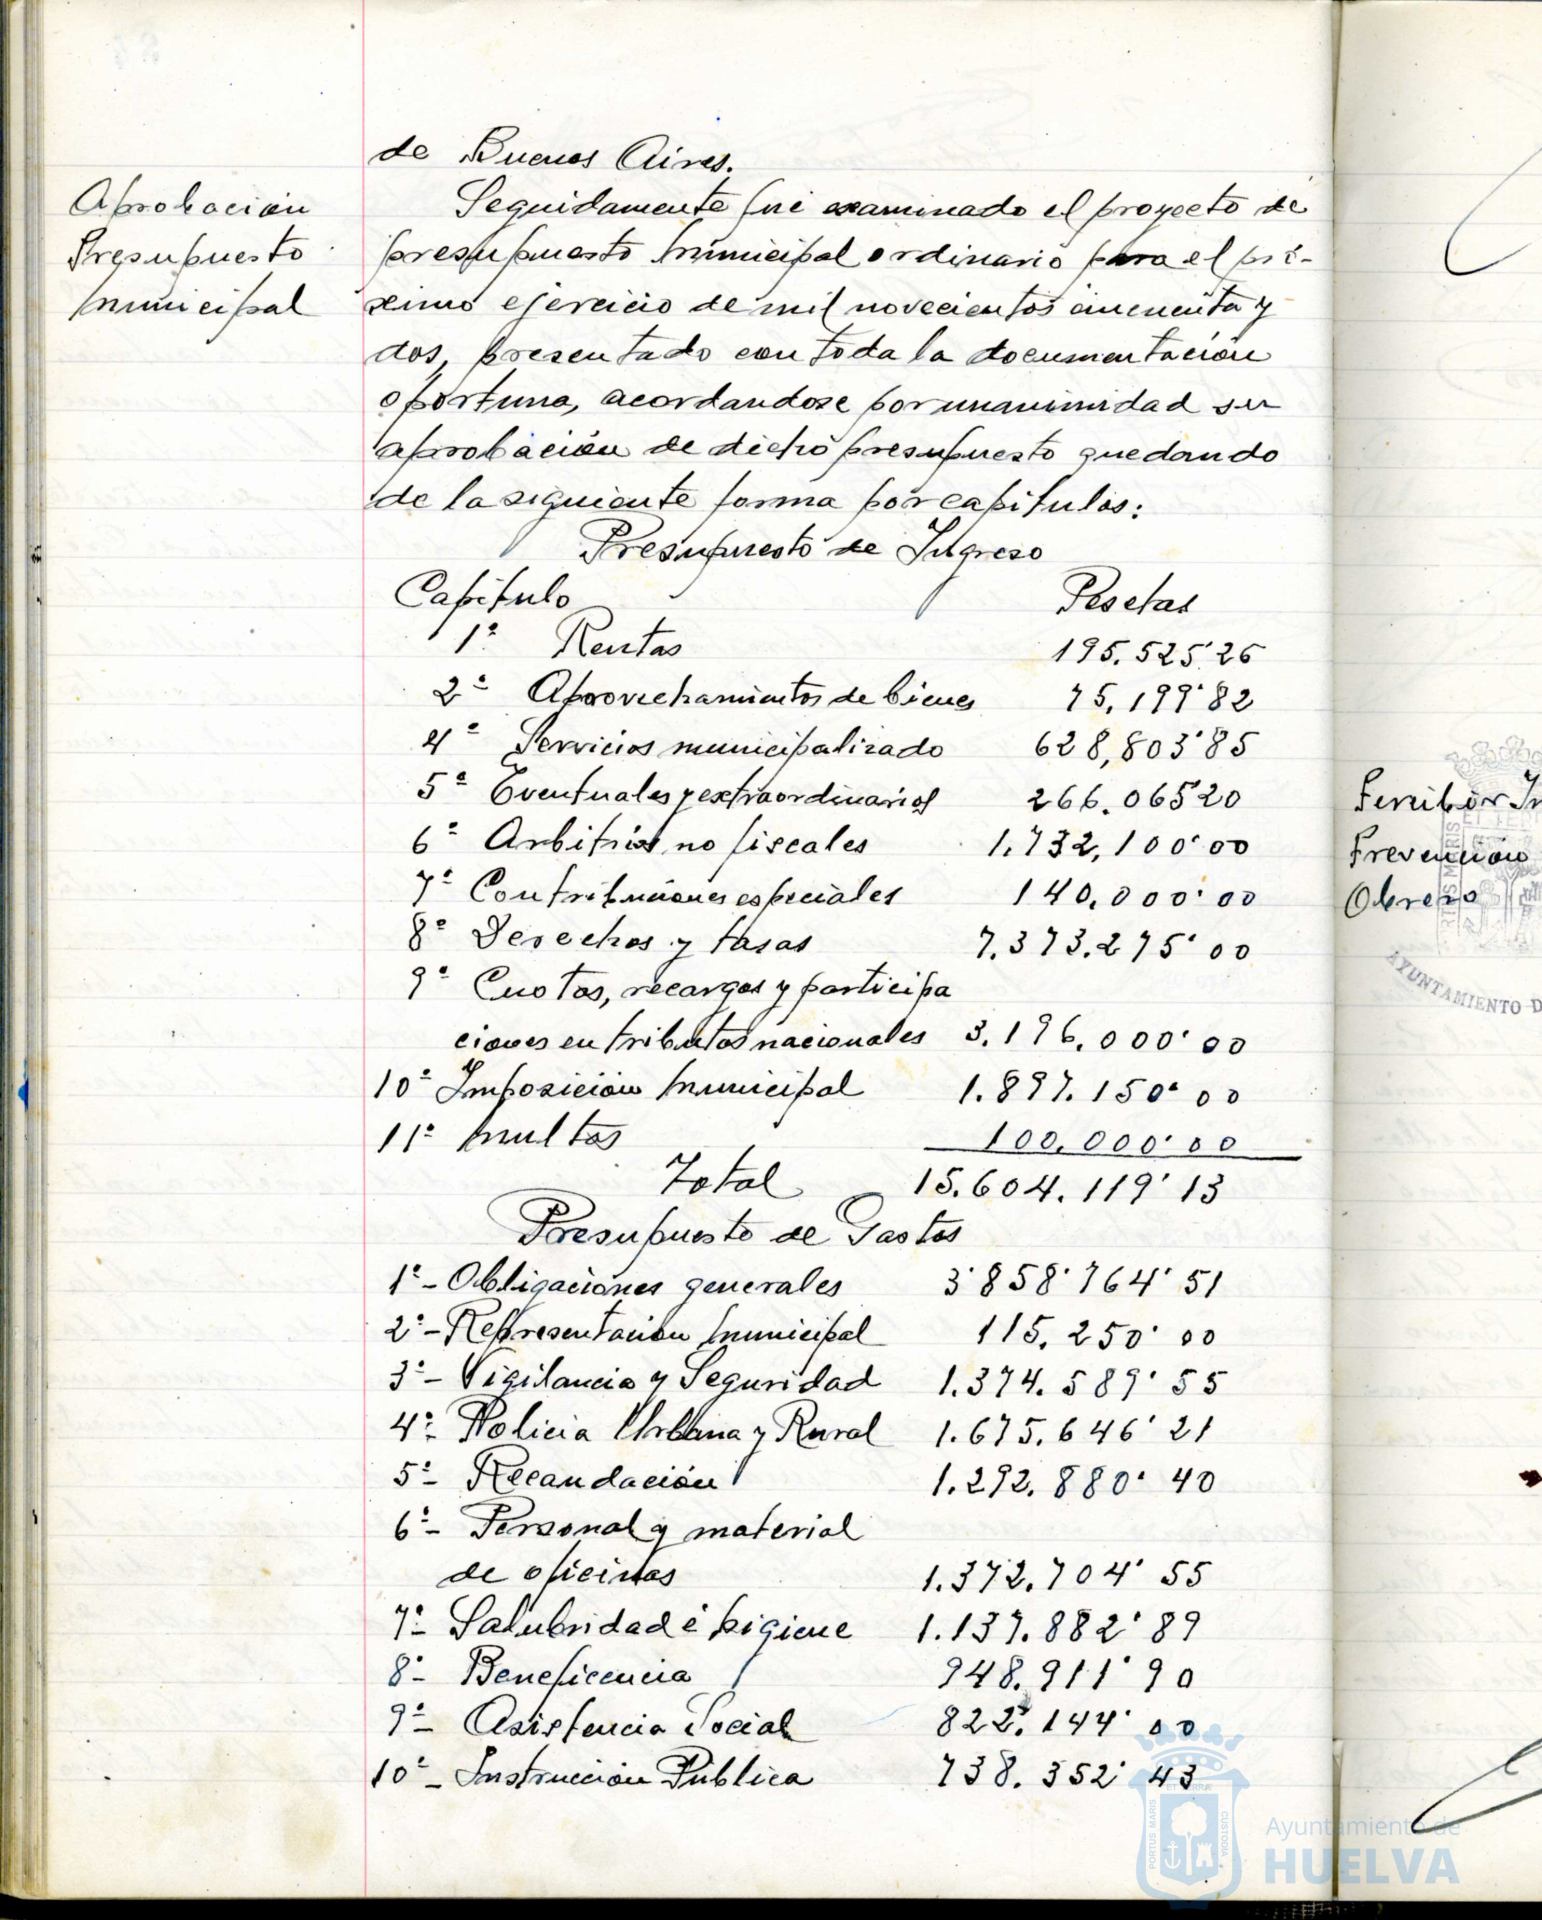 de Buenos Aires.
Aprobación
Presupuesto
Municipal
Seguidamente fué examinado el proyecto de
presupuesto Municipal ordinario para el pró-
ximo ejercicio de mil novecientos cincuenta y
dos, presentado con toda la documentación
oportuna, acordandose por unanimidad su
aprobación de dicho presupuesto quedando
de la siguiente forma por capítulos:
Presupuesto de Ingreso
Capítulo Pesetas
1º Rentas 195.525'26
2º Aprovechamientos de bienes 75.199'82
4º Servicios municipalizado 628,803'85
5º Eventuales y extraordinarios 266.065'20
6º Arbitrios no fiscales 1.732,100'00
7º Contribuciones especiales 140.000'00
8º Derechos y tasas 7.373.275'00
9º Cuotas, recargos y participa
ciones en tributos nacionales 3.196.000'00
10º Imposición Municipal 1.897.150'00
11º Multas 100.000'00
Total 15.604.119'13
Presupuesto de Gastos
1º- Obligaciones generales 3'858'764'51
2º- Representación Municipal 115.250'00
3º- Vigilancia y Seguridad 1.374.589'55
4º- Policia Urbana y Rural 1.675.646'21
5º- Recaudación 1.292.880'40
6º- Personal y material
de oficinas 1.372.704'55
7º- Salubridad é higiene 1.137.882'89
8º- Beneficencia 948.911'90
9º- Asistencia Social 822.144'00
10º- Instrucción Pública 738.352'43
Prevención
Obrero
AYUNTAMIENTO D
PORTUS MARIS
CUSTODIA
Ayuntamiento de
HUELVA